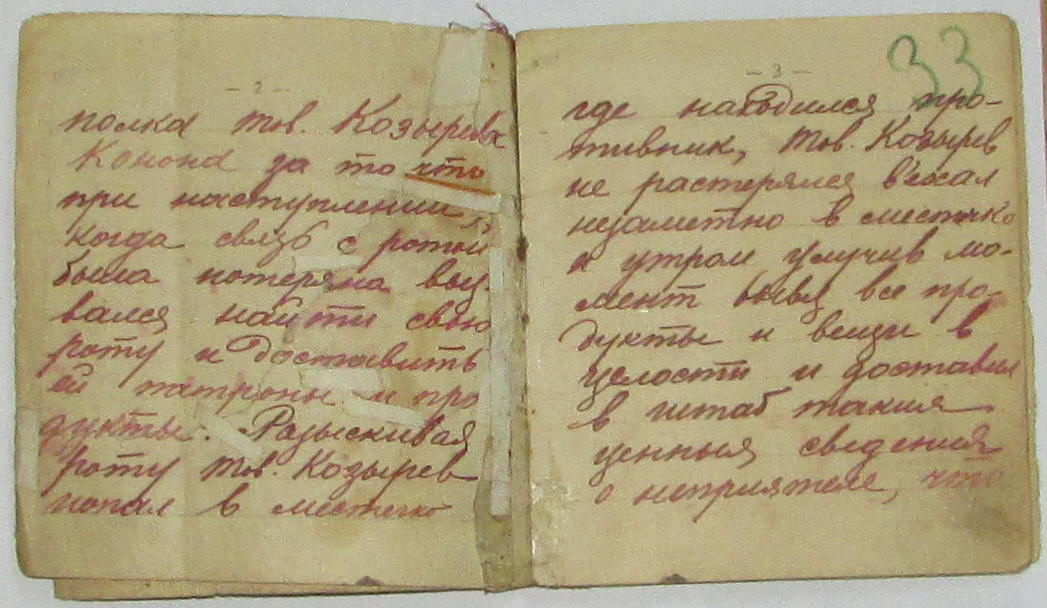 — 2 —
полка тов. Козырева
Конона за то что
при наступлении,
когда связь с ротой
была потеряна выз
вался найти свою
роту и доставить
ей патроны и про
дукты. Разыскивая
роту тов. Козырев
попал в местечко
— 3 —
33
где находился про-
тивник, тов. Козырев
не растерялся въехал
незаметно в местечко
и утром улучив мо-
мент вывез все про-
дукты и вещи в
целости и доставил
в штаб такия
ценныя сведения
о неприятеле, что